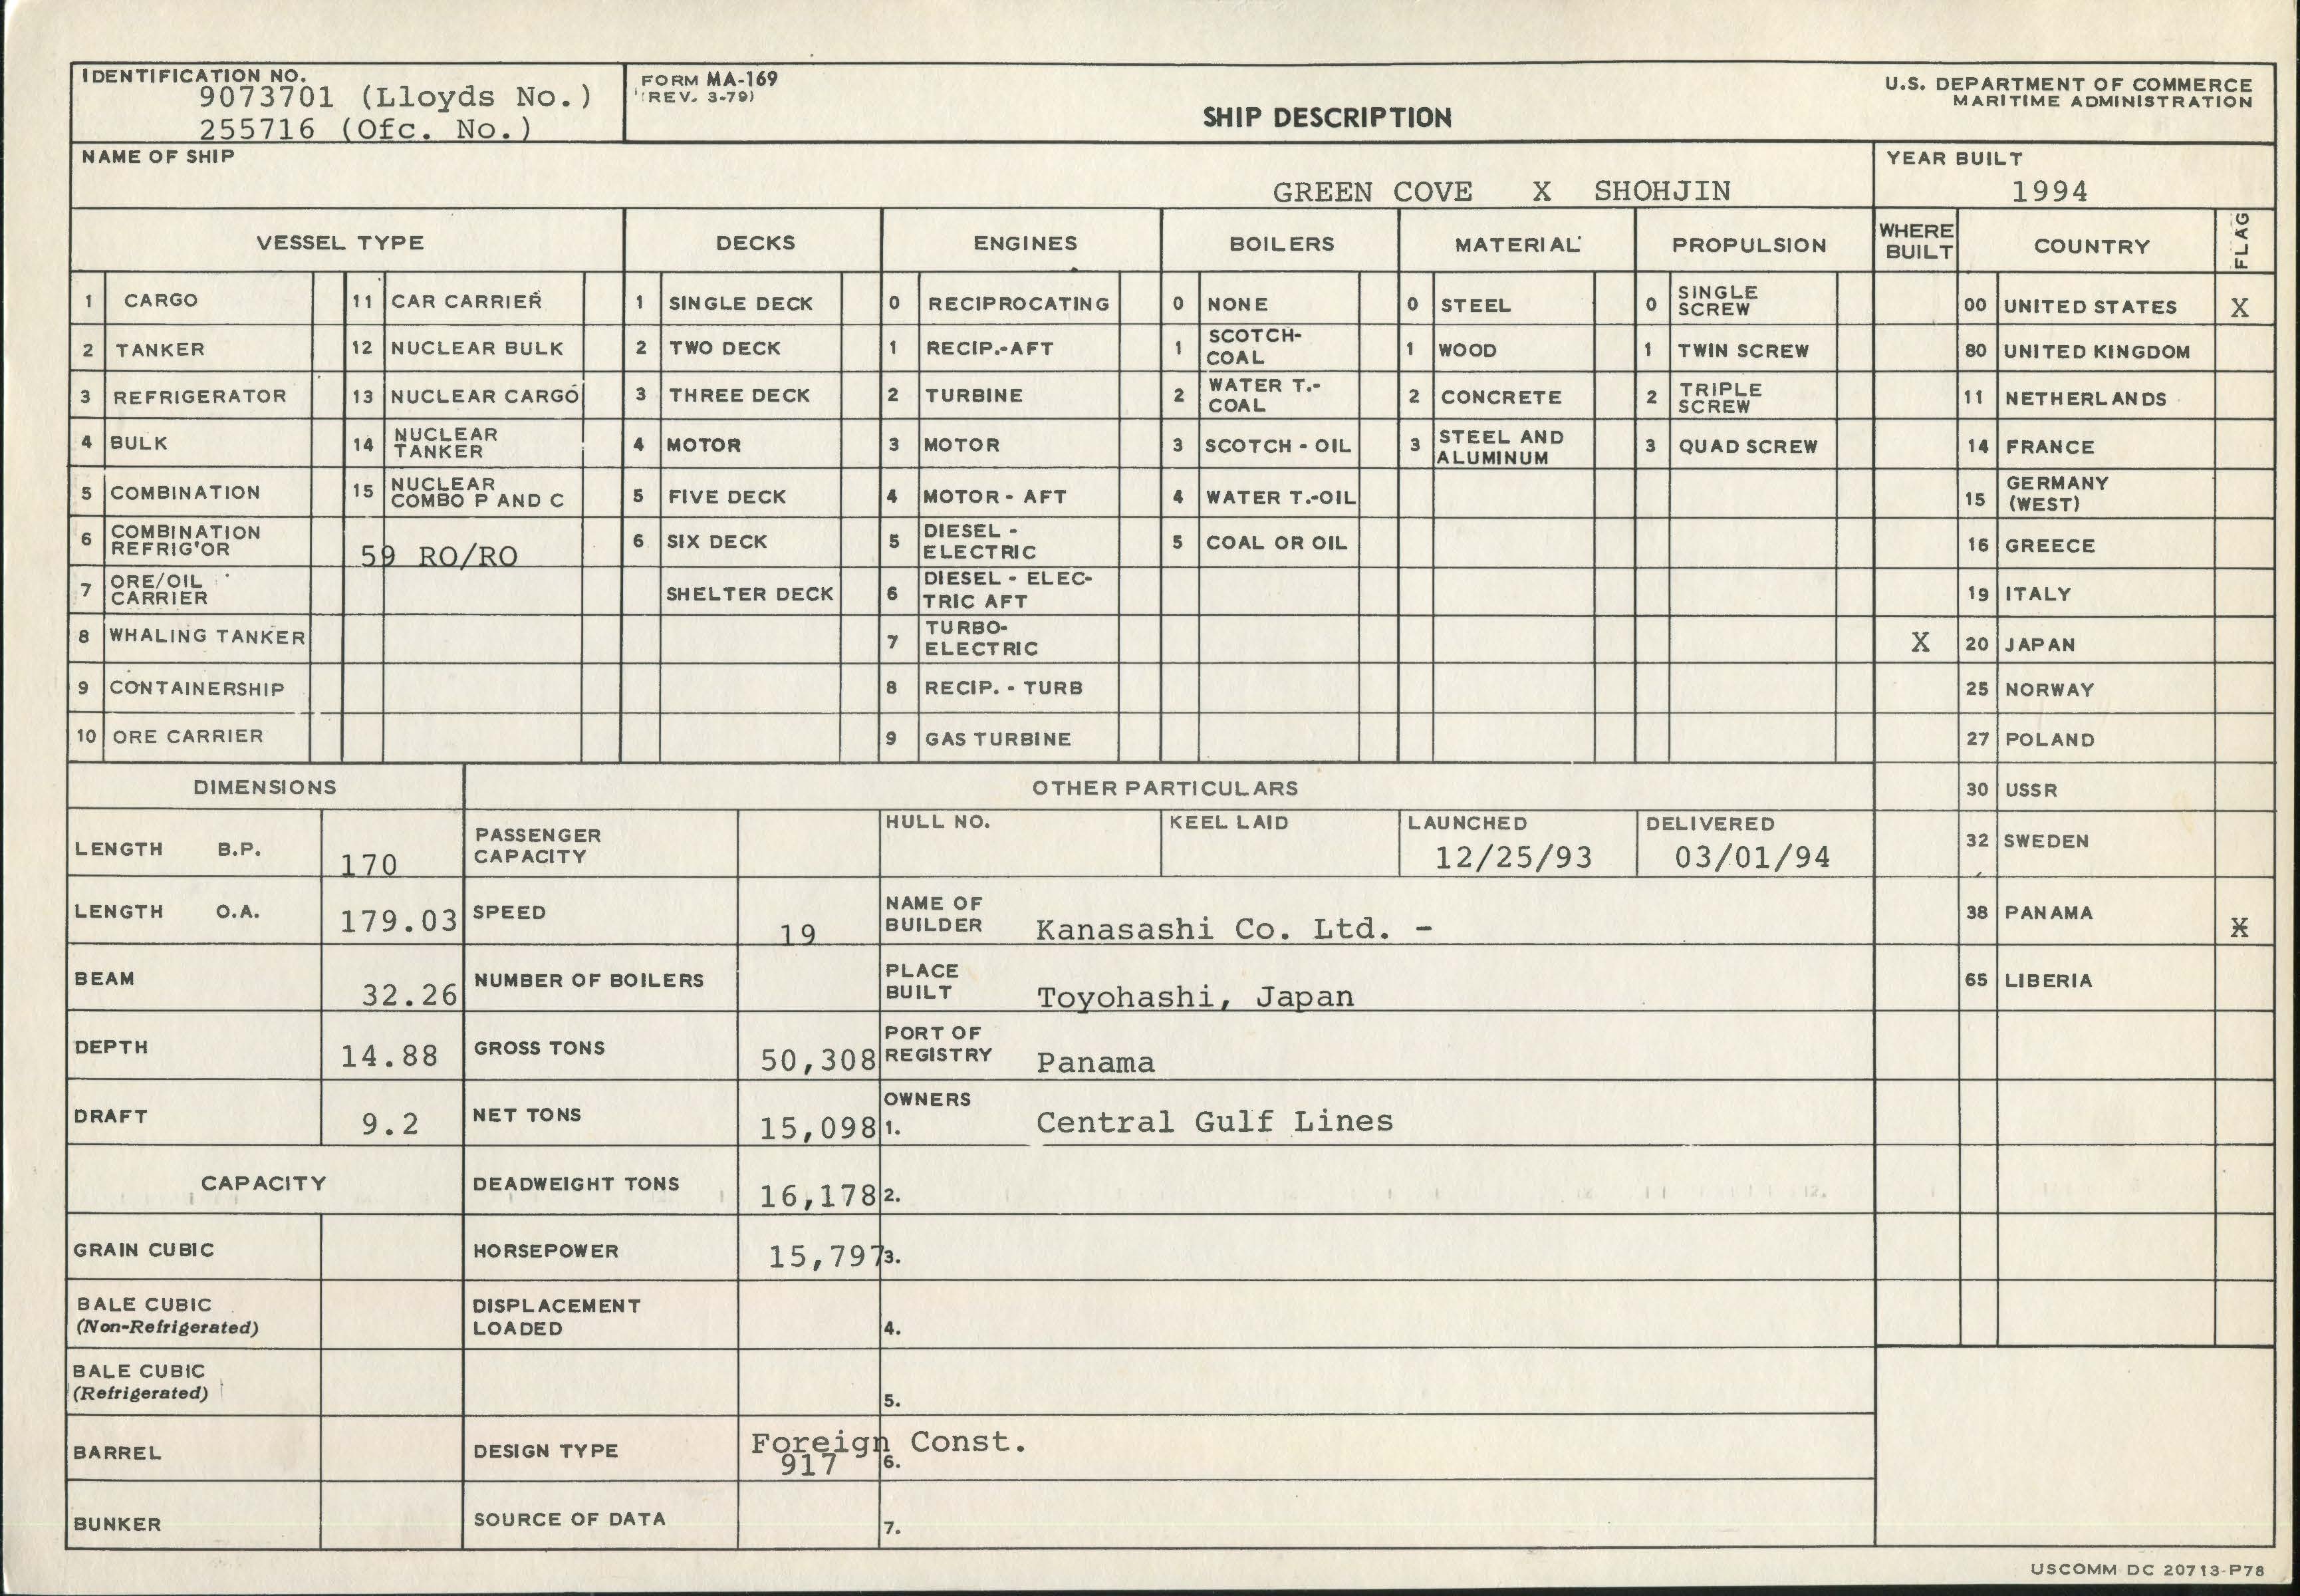 IDENTIFICATION NO.
9073701 (Lloyds No.)
255716 (Ofc. No.)
FORM MA-169
(REV. 3-79)
SHIP DESCRIPTION
U.S. DEPARTMENT OF COMMERCE
MARITIME ADMINISTRATION
NAME OF SHIP
GREEN COVE X SHOHJIN
YEAR BUILT
1994
VESSEL TYPE DECKS ENGINES BOILERS MATERIAL PROPULSION WHERE BUILT COUNTRY FLAG
1 CARGO 11 CAR CARRIER 1 SINGLE DECK 0 RECIPROCATING 0 NONE 0 STEEL 0 SINGLE SCREW 00 UNITED STATES X
2 TANKER 12 NUCLEAR BULK 2 TWO DECK 1 RECIP.-AFT 1 SCOTCH-COAL 1 WOOD 1 TWIN SCREW 80 UNITED KINGDOM
3 REFRIGERATOR 13 NUCLEAR CARGO 3 THREE DECK 2 TURBINE 2 WATER T.-COAL 2 CONCRETE 2 TRIPLE SCREW 11 NETHERLANDS
4 BULK 14 NUCLEAR TANKER 4 MOTOR 3 MOTOR 3 SCOTCH - OIL 3 STEEL AND ALUMINUM 3 QUAD SCREW 14 FRANCE
5 COMBINATION 15 NUCLEAR COMBO P AND C 5 FIVE DECK 4 MOTOR - AFT 4 WATER T.-OIL 15 GERMANY (WEST)
6 COMBINATION REFRIG'OR 59 RO/RO 6 SIX DECK 5 DIESEL - ELECTRIC 5 COAL OR OIL 16 GREECE
7 ORE/OIL CARRIER SHELTER DECK 6 DIESEL - ELEC-TRIC AFT 19 ITALY
8 WHALING TANKER 7 TURBO-ELECTRIC X 20 JAPAN
9 CONTAINERSHIP 8 RECIP. - TURB 25 NORWAY
10 ORE CARRIER 9 GAS TURBINE 27 POLAND
DIMENSIONS OTHER PARTICULARS 30 USSR
LENGTH B.P. 170 PASSENGER CAPACITY HULL NO. KEEL LAID LAUNCHED 12/25/93 DELIVERED 03/01/94 32 SWEDEN
LENGTH O.A. 179.03 SPEED 19 NAME OF BUILDER Kanasashi Co. Ltd. - 38 PANAMA X
BEAM 32.26 NUMBER OF BOILERS PLACE BUILT Toyohashi, Japan 65 LIBERIA
DEPTH 14.88 GROSS TONS 50,308 PORT OF REGISTRY Panama
DRAFT 9.2 NET TONS 15,098 OWNERS 1. Central Gulf Lines
CAPACITY DEADWEIGHT TONS 16,178 2.
GRAIN CUBIC HORSEPOWER 15,797 3.
BALE CUBIC (Non-Refrigerated) DISPLACEMENT LOADED 4.
BALE CUBIC (Refrigerated) 5.
BARREL DESIGN TYPE Foreign Const. 917 6.
BUNKER SOURCE OF DATA 7.
USCOMM DC 20713-P78